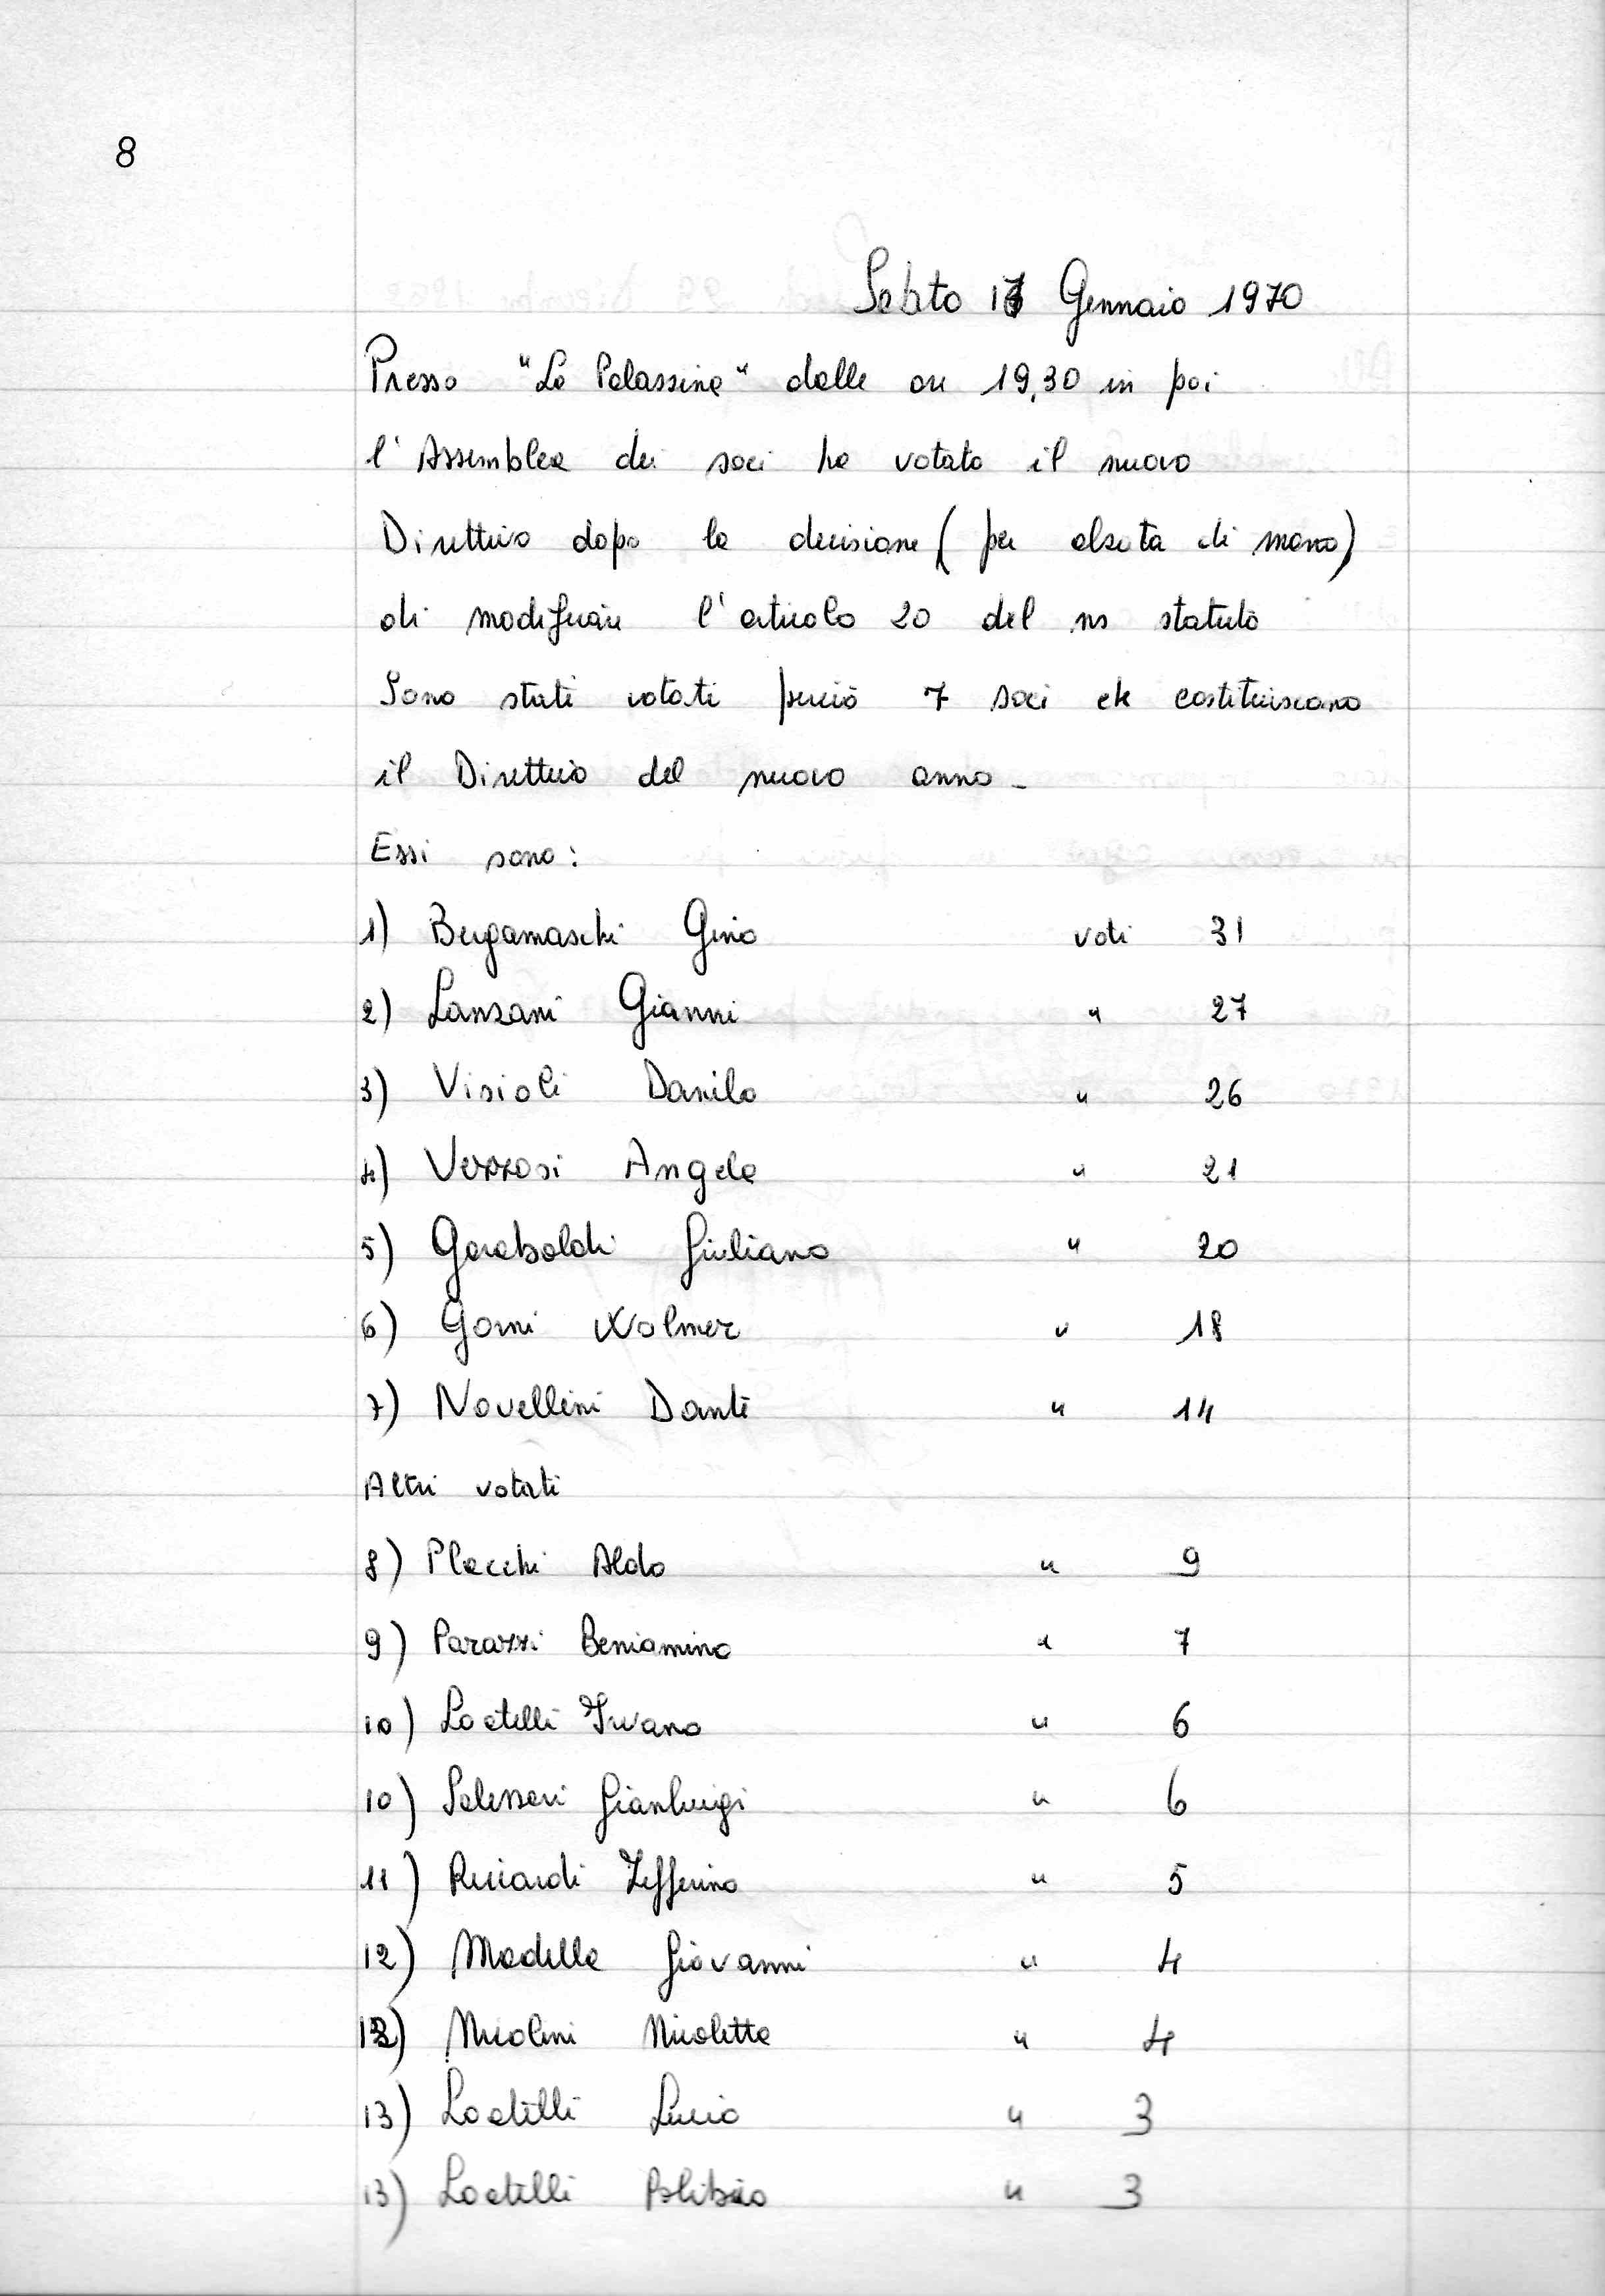 8
Sabato 17 Gennaio 1970
Presso "La Palassina" dalle ore 19,30 in poi
l'Assemblea dei soci ha votato il nuovo
Direttivo dopo la decisione (per alzata di mano)
di modificare l'articolo 20 del ns statuto
Sono stati votati perciò 7 soci che costituiscono
il Direttivo del nuovo anno -
Essi sono:
1) Bergamaschi Gino voti 31
2) Lanzani Gianni " 27
3) Visioli Danilo " 26
4) Vezzosi Angela " 21
5) Garaboldi Giuliano " 20
6) Gorni Wolmer " 18
7) Novellini Dante " 14
Altri votati
8) Placchi Aldo " 9
9) Parazzi Beniamino " 7
10) Locatelli Ivano " 6
10) Gianluigi " 6
11) Ricciardi Zefferino " 5
12) Madella Giovanni " 4
12) Nicolini Nicoletta " 4
13) Locatelli Lucio " 3
13) Locatelli " 3